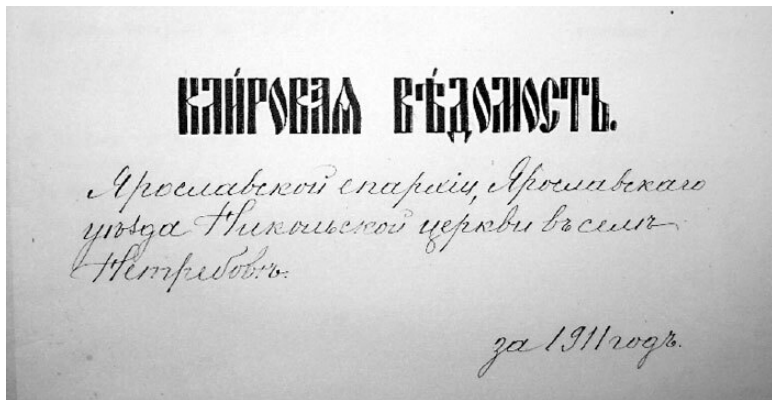 КЛИ́РОВАѦ ВѢ́ДОМОСТЬ.
Ярославской епархіи, Ярославскаго
уѣзда Никольской церкви въ селѣ
Нетребовѣ.
за 1911 годъ.